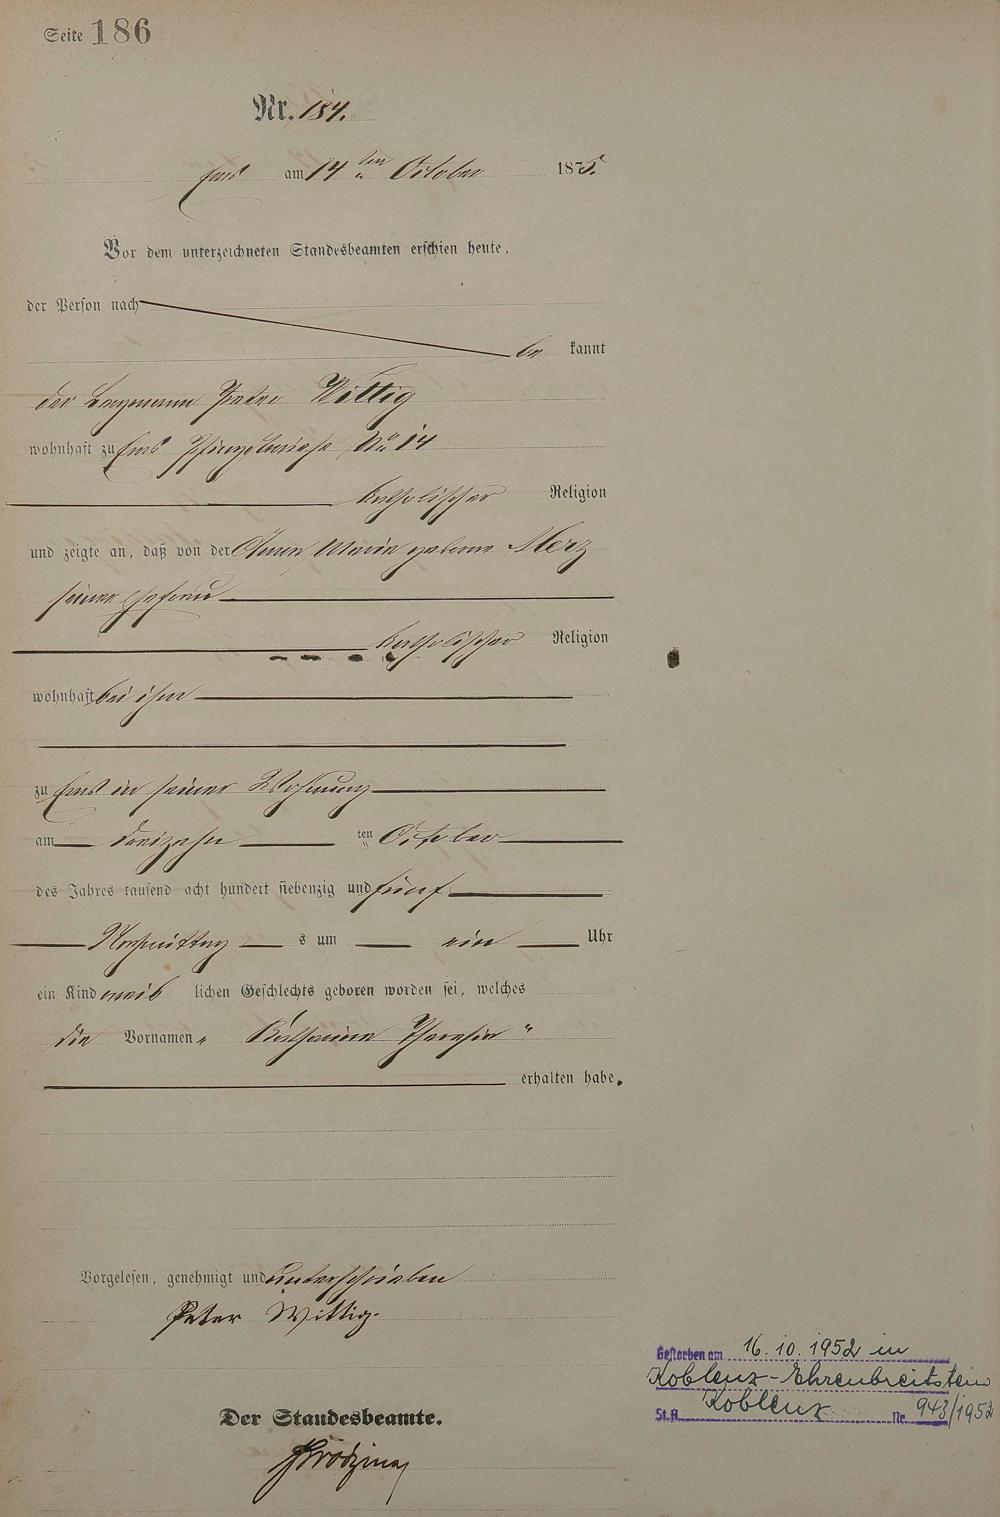 Seite 186
Nr. 184.
Ems am 14ten October 1875.
Vor dem unterzeichneten Standesbeamten erschien heute,
der Person nach
be kannt
der Bergmann Peter Wittig
wohnhaft zu Ems No 14
katholischer Religion
und zeigte an, daß von der Anna Maria geborne Merz
seiner Ehefrau
katholischer Religion
wohnhaft bei ihm
zu Ems in seiner Wohnung
am dreizehn ten October
des Jahres tausend acht hundert siebenzig und fünf
Nachmittag s um ein Uhr
ein Kind weib lichen Geschlechts geboren worden sei, welches
die Vornamen „Katharina Theresia"
erhalten habe.
Vorgelesen, genehmigt und unterschrieben
Peter Wittig.
Der Standesbeamte.
Gestorben am 16.10.1952 in
Koblenz-Ehrenbreitstein
St.A. Koblenz Nr. 943/1952